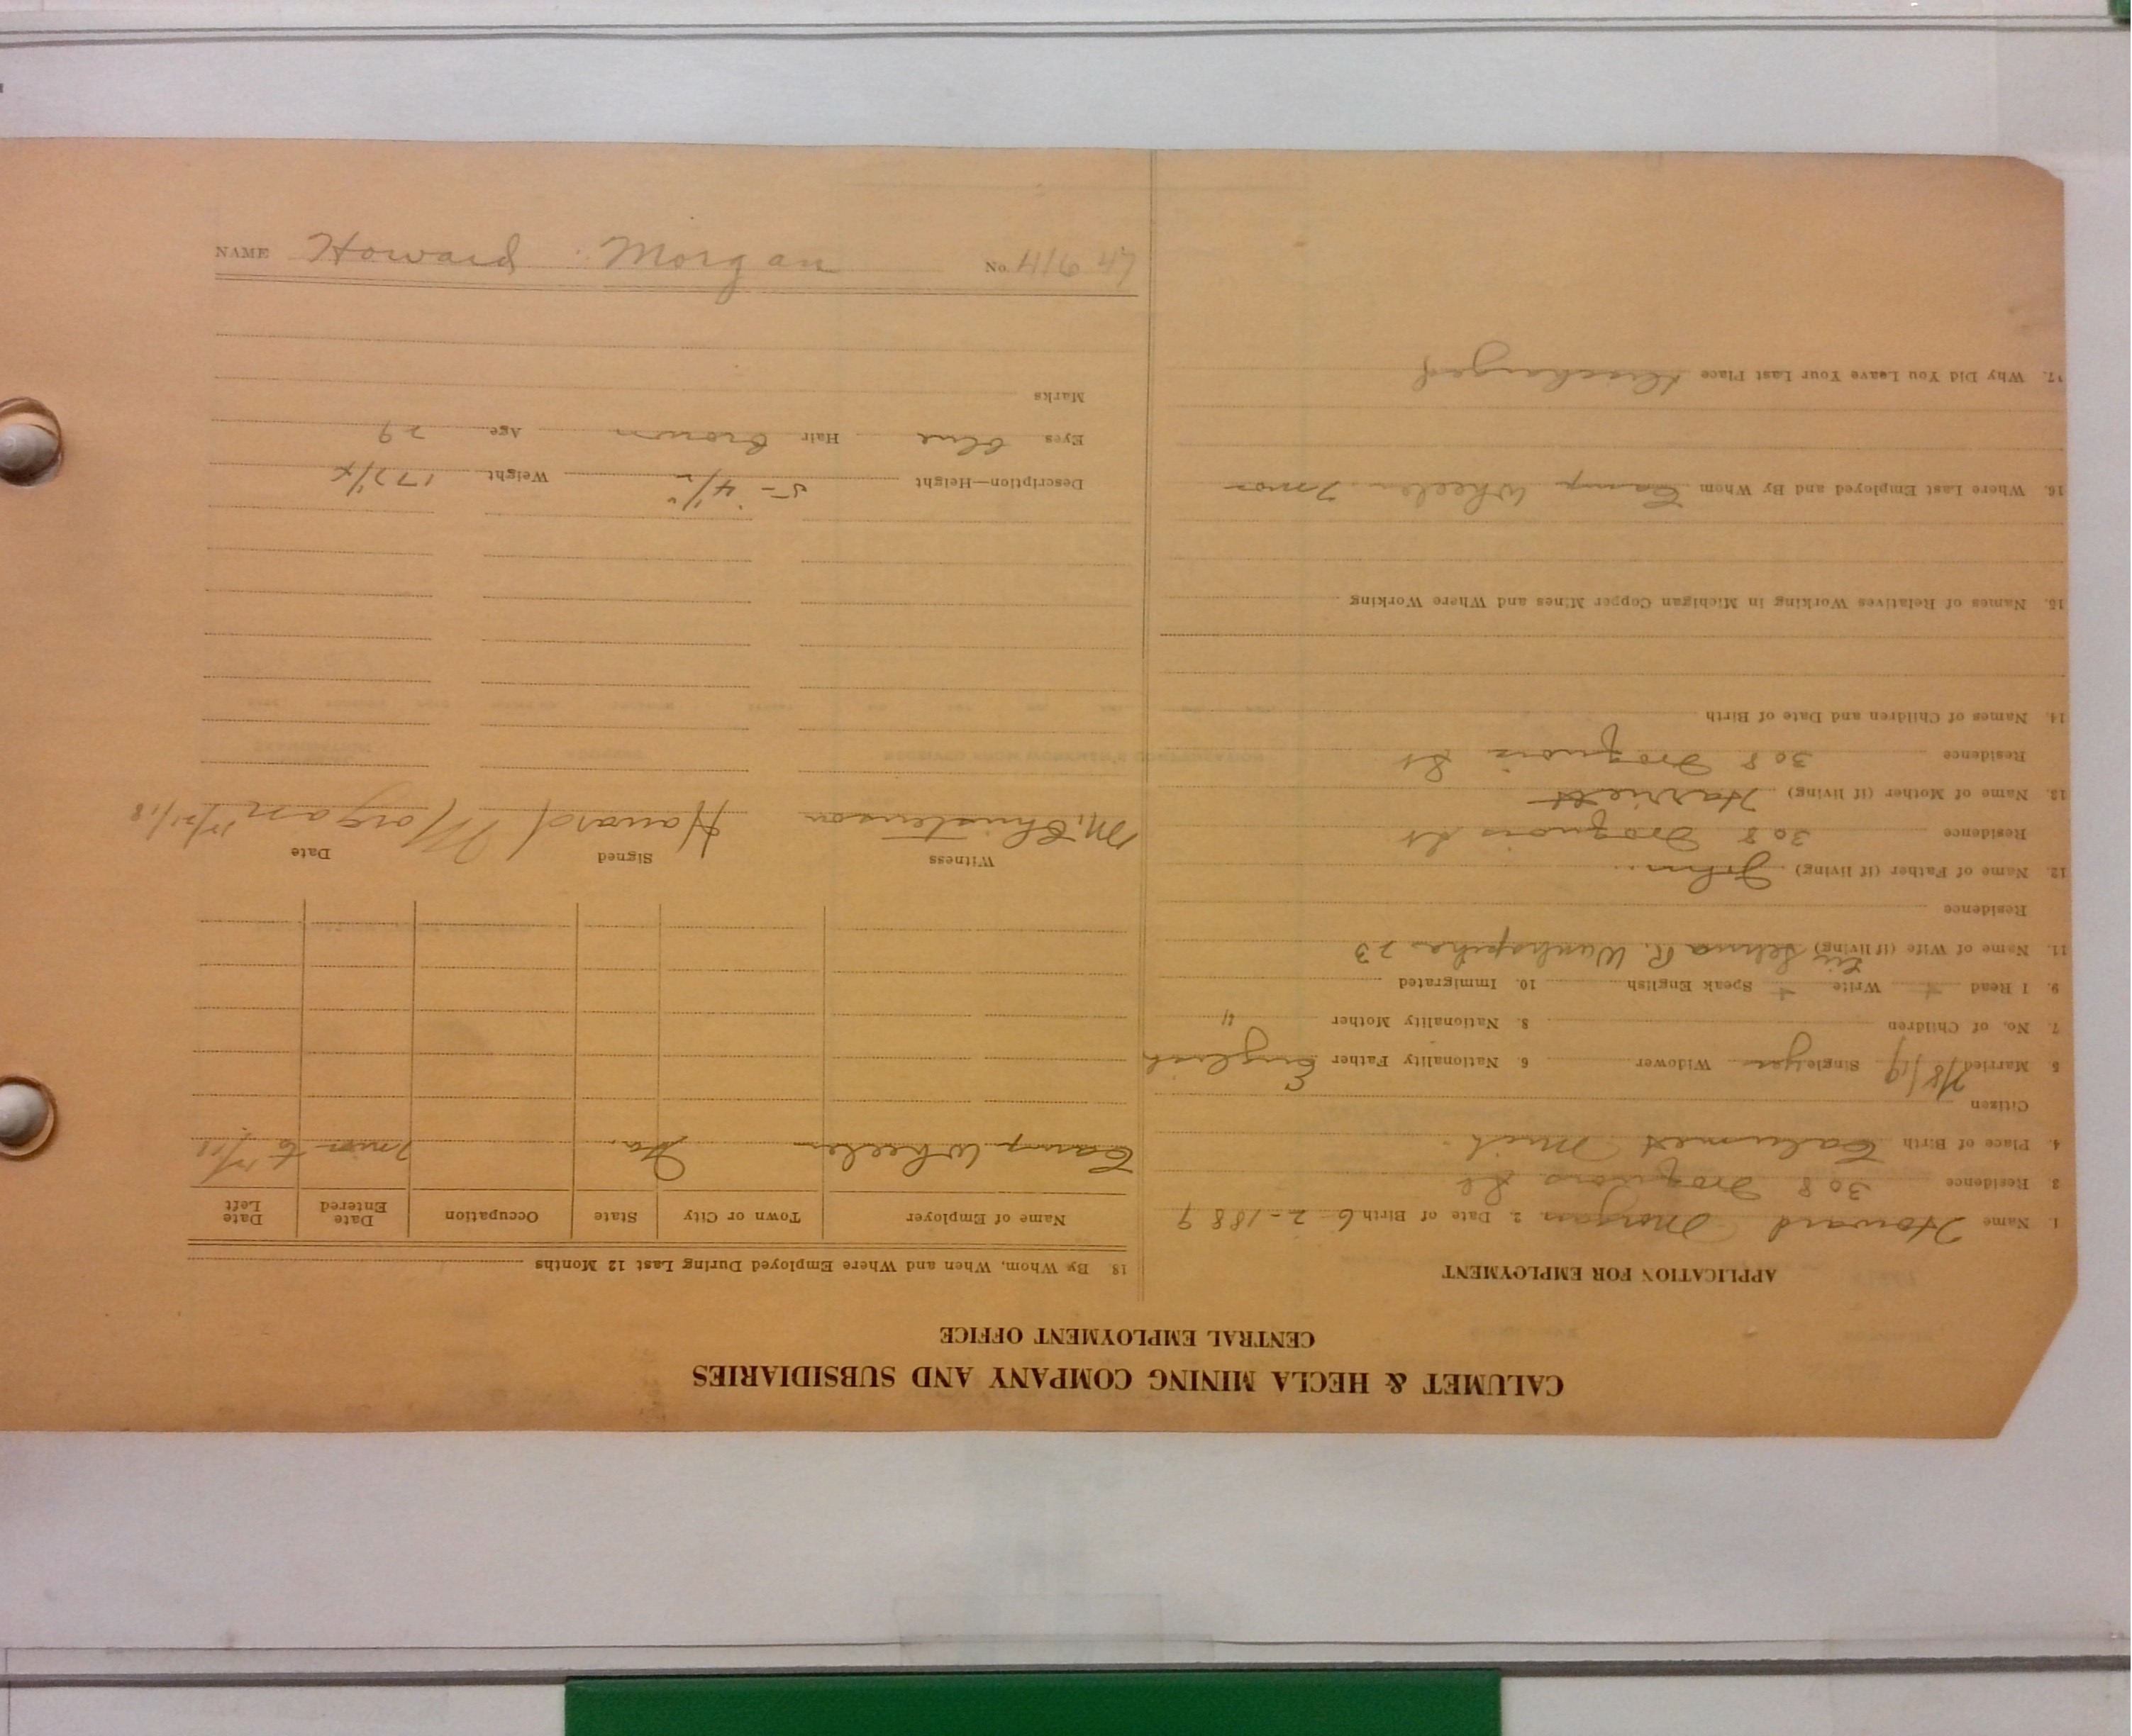 CALUMET & HECLA MINING COMPANY AND SUBSIDIARIES
CENTRAL EMPLOYMENT OFFICE
APPLICATION FOR EMPLOYMENT
1. Name Howard Morgan 2. Date of Birth 6-2-1889
3 Residence 308 Iroquois St
4. Place of Birth Calumet Mich.
Citizen
5 Married 7/8/19 Single yes Widower 6. Nationality Father English
7. No. of Children 8. Nationality Mother "
9. I Read + Write + Speak English 10. Immigrated
11. Name of Wife (if living) Selma R.
Residence
12. Name of Father (if living) John
Residence 308 Iroquois St
13. Name of Mother (if living) Harriett
Residence 308 Iroquois St
14. Names of Children and Date of Birth
15. Names of Relatives Working in Michigan Copper Mines and Where Working
16. Where Last Employed and By Whom Camp Wheeler 7 mos
17. Why Did You Leave Your Last Place Discharged
18. By Whom, When and Where Employed During Last 12 Months
Name of Employer Town or City State Occupation Date Entered Date Left
Camp Wheeler Ga. 7 mos to
Witness Signed Date
M. Christenson Howard Morgan
Description—Height 5-4 1/2" Weight
Eyes blue Hair Brown Age 29
Marks
NAME Howard Morgan No. 41647